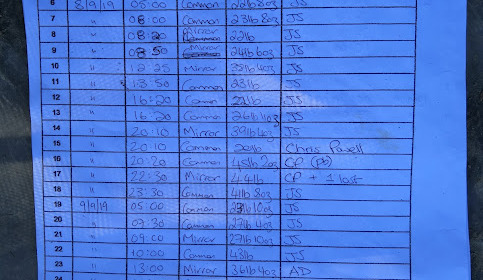 6 8/9/19 05:00 Common 22lb 8oz JS
7 " 08:00 Common 23lb 8oz JS
8 " 08:20 Mirror 22lb JS
9 " 08 50 Mirror 24lb 6oz JS
10 " 12:25 Mirror 35lb 4oz JS
11 " 13:50 Common 23lb JS
12 " 16:20 Common JS
13 " 16:20 Common 26lb 4oz JS
14 " 20:10 Mirror 39lb 4oz JS
15 " 20:10 Common 20lb Chris Powell
16 " 20:20 Common 45lb 2oz CP (Pb)
17 " 22:30 Mirror 44lb CP + 1 lost
18 " 23:30 Common 41lb 8oz JS
19 9/9/19 05:00 Common 10oz JS
20 " 07:30 Common 27lb 4oz JS
21 " 09:00 Mirror 27lb 10oz JS
22 " 10:00 Common 43lb JS
23 " 13:00 Mirror 36lb 4oz AD
24